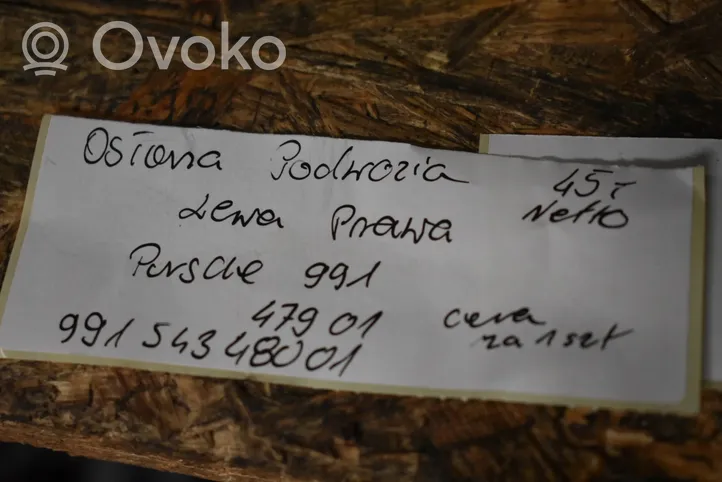 Ovoko
Osłona Podwozia
45,-
Netto
Lewa Prawa
Porsche 991
47901
991 543 480 01
cena
za 1 szt